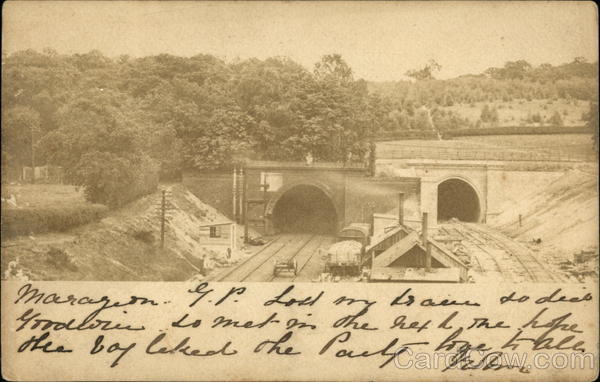 Marazion. G.P. Lost my train so did
Goodwin so met in the next one hope
the boy liked the Party love to all
CardCow.com